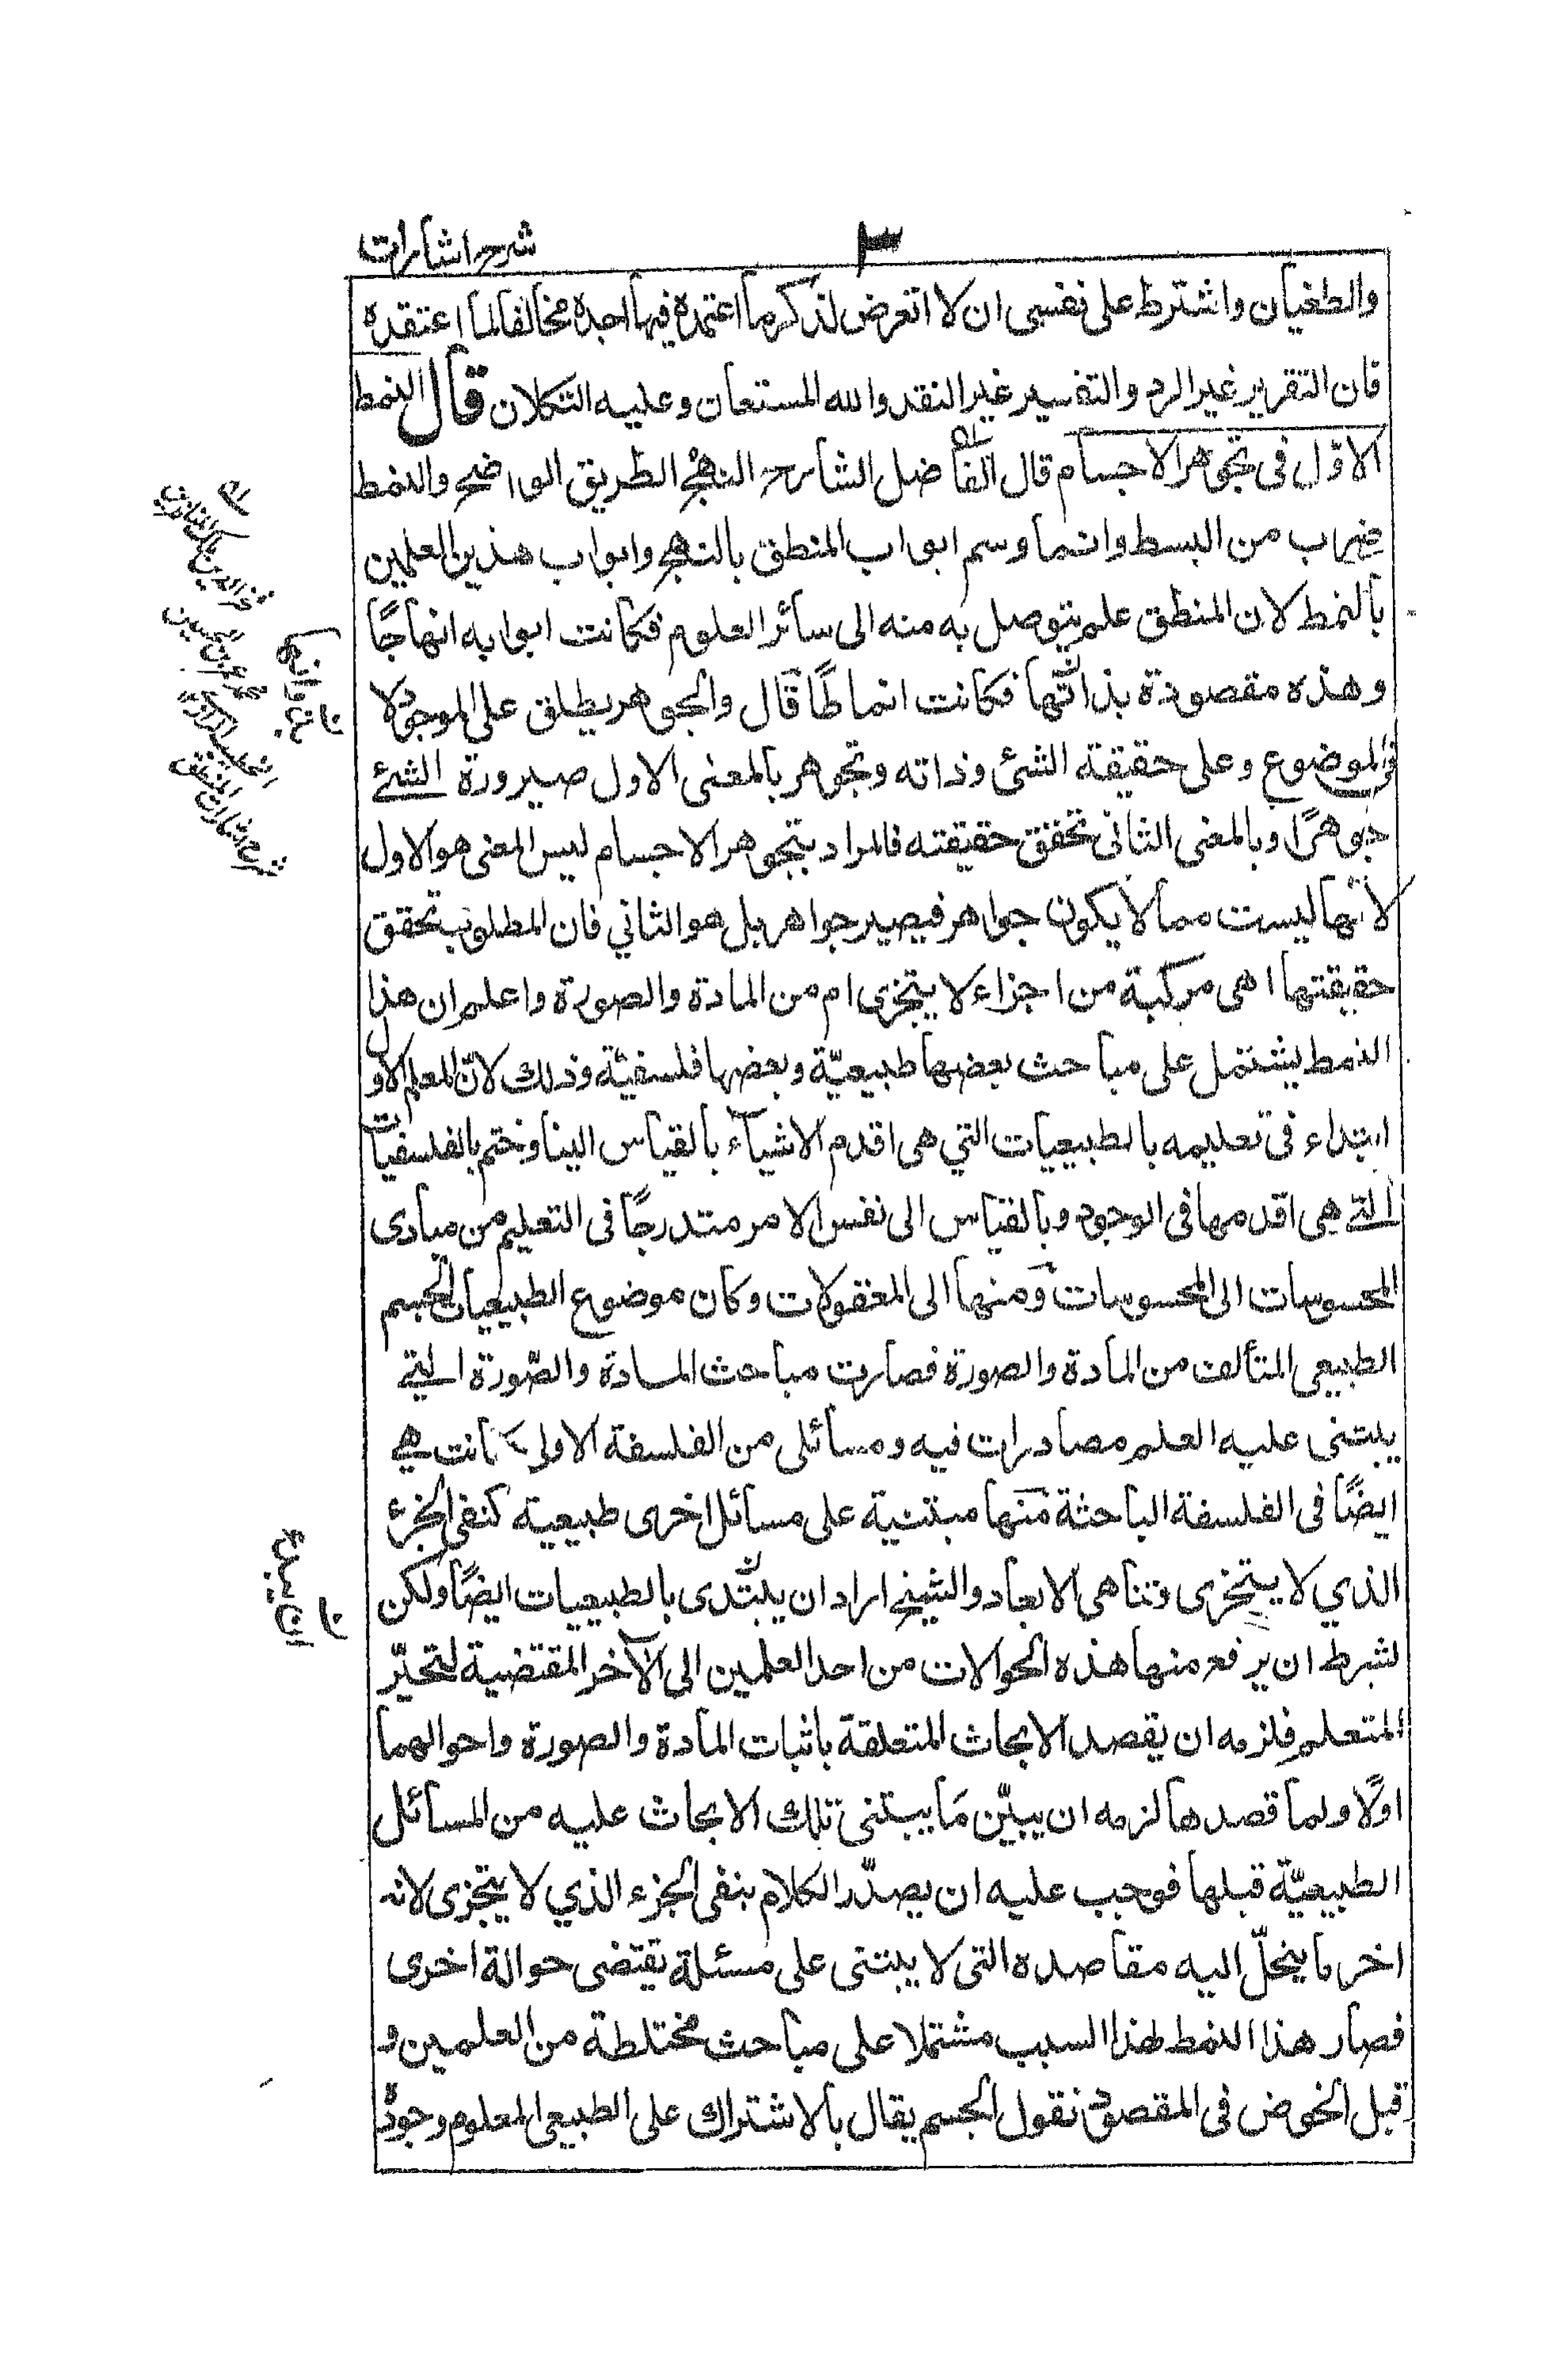 ٣
شرح اشارات
والطغيان واشترط على نفسى ان لا اتعرض لذكر ما اعتمده فيها اجده مخالفا لما اعتقده
فان التقرير غير الرد والتفسير غير النقد والله المستعان وعليه التكلان قال النمط
الاوّل فى تجوهر الاجسام قال الفاضل الشارح النهج الطريق الواضح والنمط
ضراب من البسط وانما وسم ابواب المنطق بالنهج وابواب هذين العلمين
بالنمط لان المنطق علم يتوصل به منه الى سائر العلوم فكانت ابوابه انهاجًا
وهذه مقصودة بذاتها فكانت انماطًا قال والجوهر يطلق على الموجود لا
فى الموضوع وعلى حقيقة الشئ وذاته وتجوهر بالمعنى الاول صيرورة الشئ
جوهرًا وبالمعنى الثانى تحقق حقيقته فالمراد بتجوهر الاجسام ليس المعنى هو الاول
لانها ليست مما لا يكون جواهر فيصير جواهر بل هو الثاني فان المطلوب تحقق
حقيقتها اهى مركبة من اجزاء لا يتجزى ام من المادة والصورة واعلم ان هذا
النمط يشتمل على مباحث بعضها طبيعيّة وبعضها فلسفيّة وذلك لانّ المعلم الاول
ابتداء فى تعليمه بالطبيعيات التي هى اقدم الاشياء بالقياس الينا وختم بالفلسفيات
التي هى اقدمها فى الوجود وبالقياس الى نفس الامر متدرجًا فى التعليم من مبادى
المحسوسات الى المحسوسات ومنها الى المعقولات وكان موضوع الطبيعيات الجسم
الطبيعى المتألف من المادة والصورة فصارت مباحث المادة والصّورة التي
يبتنى عليه العلم مصادرات فيه ومسائل من الفلسفة الاولى كانت هي
ايضًا فى الفلسفة الباحثة منها مبتنية على مسائل اخرى طبيعية كنفى الجزء
الذي لا يتجزى وتناهى الابعاد والشيخ اراد ان يبتدى بالطبيعيات ايضًا ولكن
لشرط ان يرفع منها هذه الحوالات من احد العلمين الى الآخر المقتضية لتحيّر
المتعلم فلزمه ان يقصد الابحاث المتعلقة باثبات المادة والصورة واحوالهما
اولًا ولما قصدها لزمه ان يبيّن ما يبتنى تلك الابحاث عليه من المسائل
الطبيعيّة قبلها فوجب عليه ان يصدّر الكلام بنفى الجزء الذي لا يتجزى لانه
اخر ما ينحلّ اليه مقاصده التى لا يبتنى على مسئلة يقتضى حوالة اخرى
فصار هذا النمط لهذا السبب مشتملا على مباحث مختلطة من العلمين و
قبل الخوض فى المقصود نقول الجسم يقال بالاشتراك على الطبيعى المعلوم وجوده